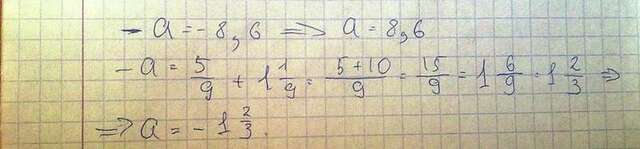 - a = - 8,6 => a = 8,6
- a = 5/9 + 1 1/9 = 5+10/9 = 15/9 = 1 6/9 = 1 2/3 =>
=> a = - 1 2/3.